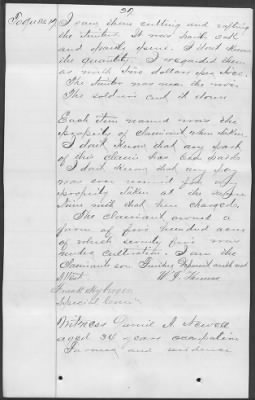 22
To Ques 17 I saw them cutting and rafting
the timber. It was part oak
and partly pine. I dont know
the quantity. I regarded them
as worth five dollars per tree.
The timber was near the river.
The soldiers cut it down
Each item named was the
property of claimant when taken.
I dont know that any part
of this claim has been paid.
I dont know that any pay
was ever received for any
property taken at the same
time with that here charged.
The Claimant owned a
farm of five hundred acres
of which seventy five was
under cultivation. I am the
Claimants son Further Deponent saith not
Attest W. J.
Frank
Special Com
Witness Daniel A. Newell
aged 34 years occupation
Farmer and residence